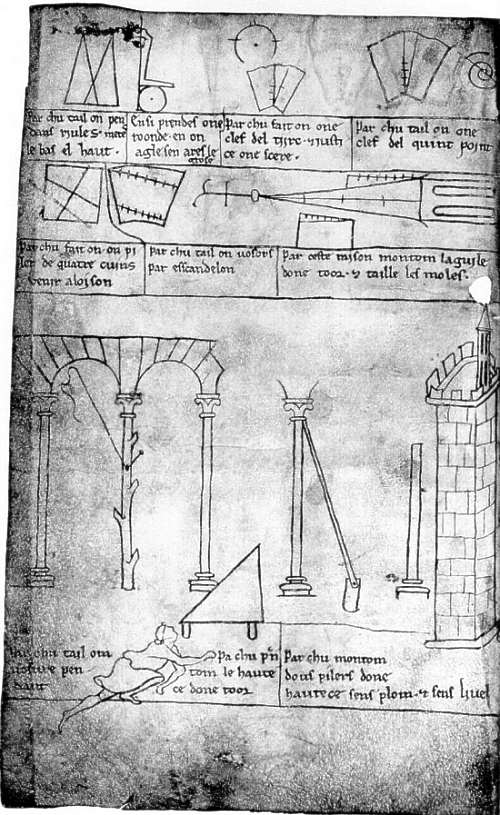 Par chu tail on pen
dans riules. mete
le bas el haut.
Ensi prendes one
roonde en on
agle sen ares le
grose
Par chu fait on one
clef del tirc. ⁊ iusti
ce one scere.
Par chu tail on one
clef del quint point
Par chu fait on on pi
ler de quatre cuins
venir aloison
Par chu tail on vosors
par esscandelon
Par ceste raison montom laguile
done toor. ⁊ taille les moles.
Par chu tail om
vosure pen
dant
Pa chu pn
tom le haute
ce done toor
Par chu montom
dous pilers done
hautece sens plom. ⁊ sens livel